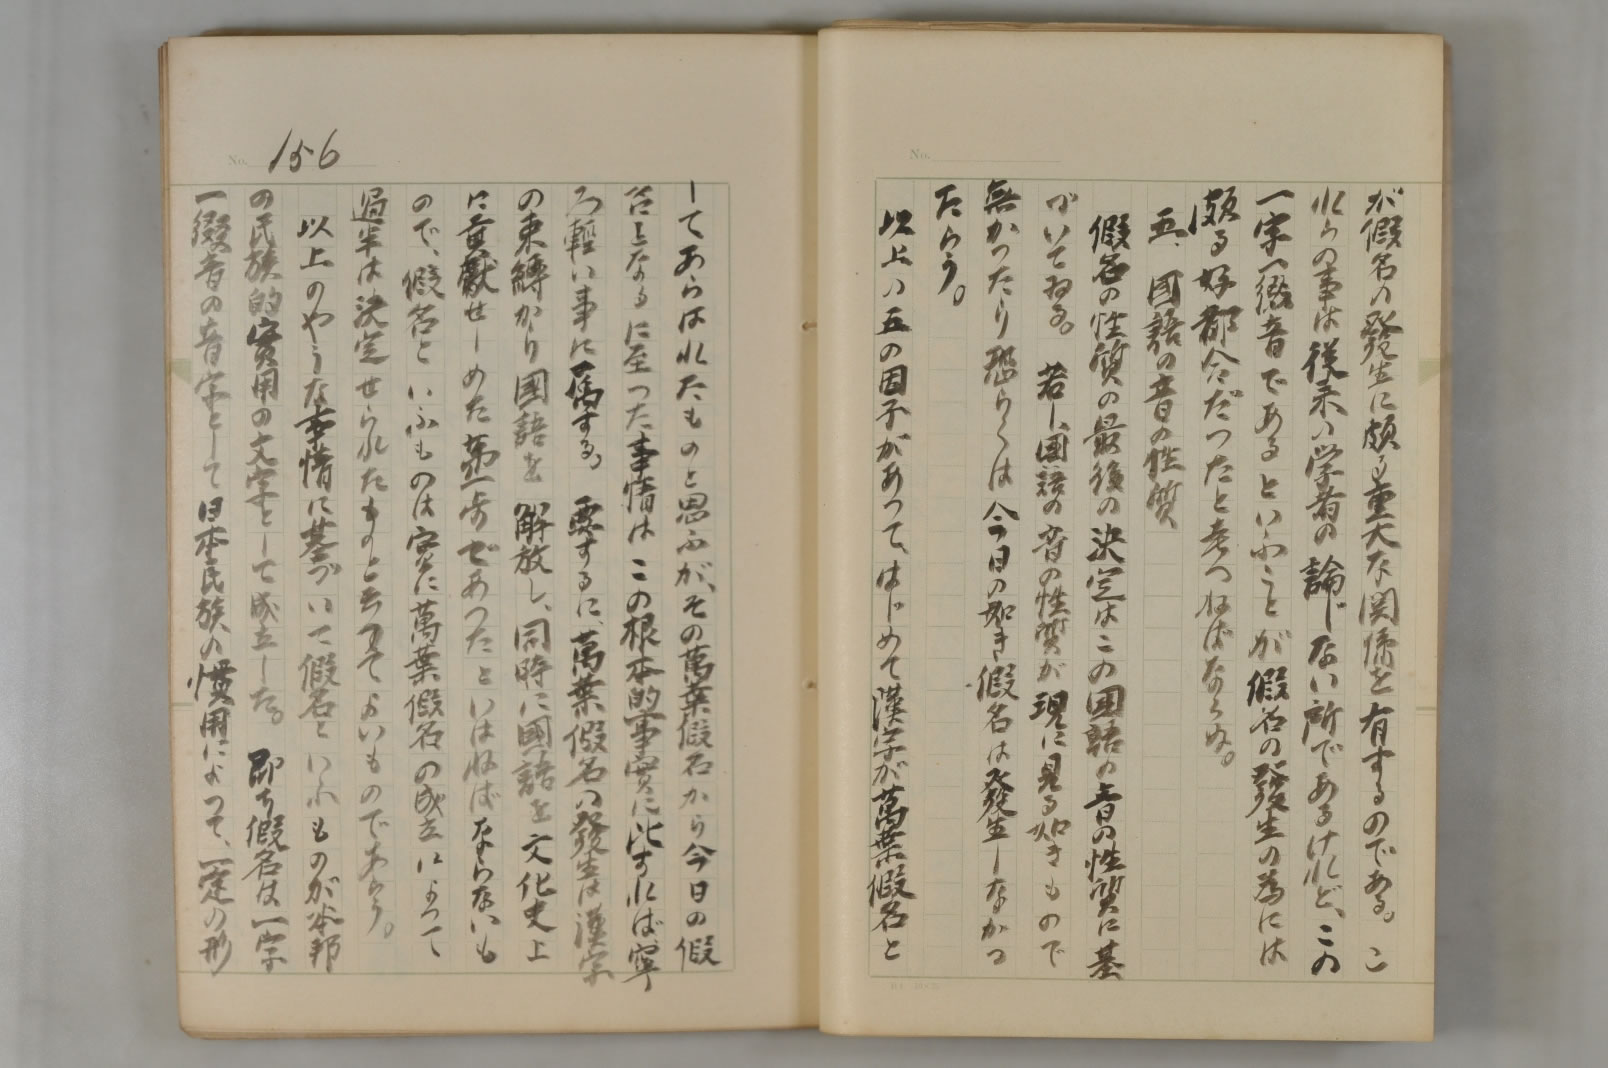 No.
が假名の發生に頗る重大な関係を有するのである。こ
れらの事は從来の学者の論じない所であるけれど、この
一字一綴音であるといふことが假名の發生の為には
頗る好都合だつたと考へねばならぬ。
五、國語の音の性質
假名の性質の最後の決定はこの国語の音の性質に基
づいてゐる。若し、國語の音の性質が現に見る如きもので
無かつたり恐らくは今日の如き假名は發生しなかつ
たらう。
以上の五の因子があつて、はじめて漢字が萬葉假名と
No. 156
してあらはれたものと思ふが、その萬葉假名から今日の假
名となるに至つた事情はこの根本的事實に比すれば、寧
ろ輕い事に属する。要するに、萬葉假名の發生は漢字
の束縛から國語を解放し、同時に國語を文化史上
に貢獻せしめた第一歩であつたといはねばならないも
ので、假名といふものは實に萬葉假名の成立によつて
過半は決定せられたものと云つてよいものであらう。
以上のやうな事情に基づいて假名といふものが本邦
の民族的實用の文字として成立した。即ち假名は一字
一綴音の音字として日本民族の慣用によつて、一定の形